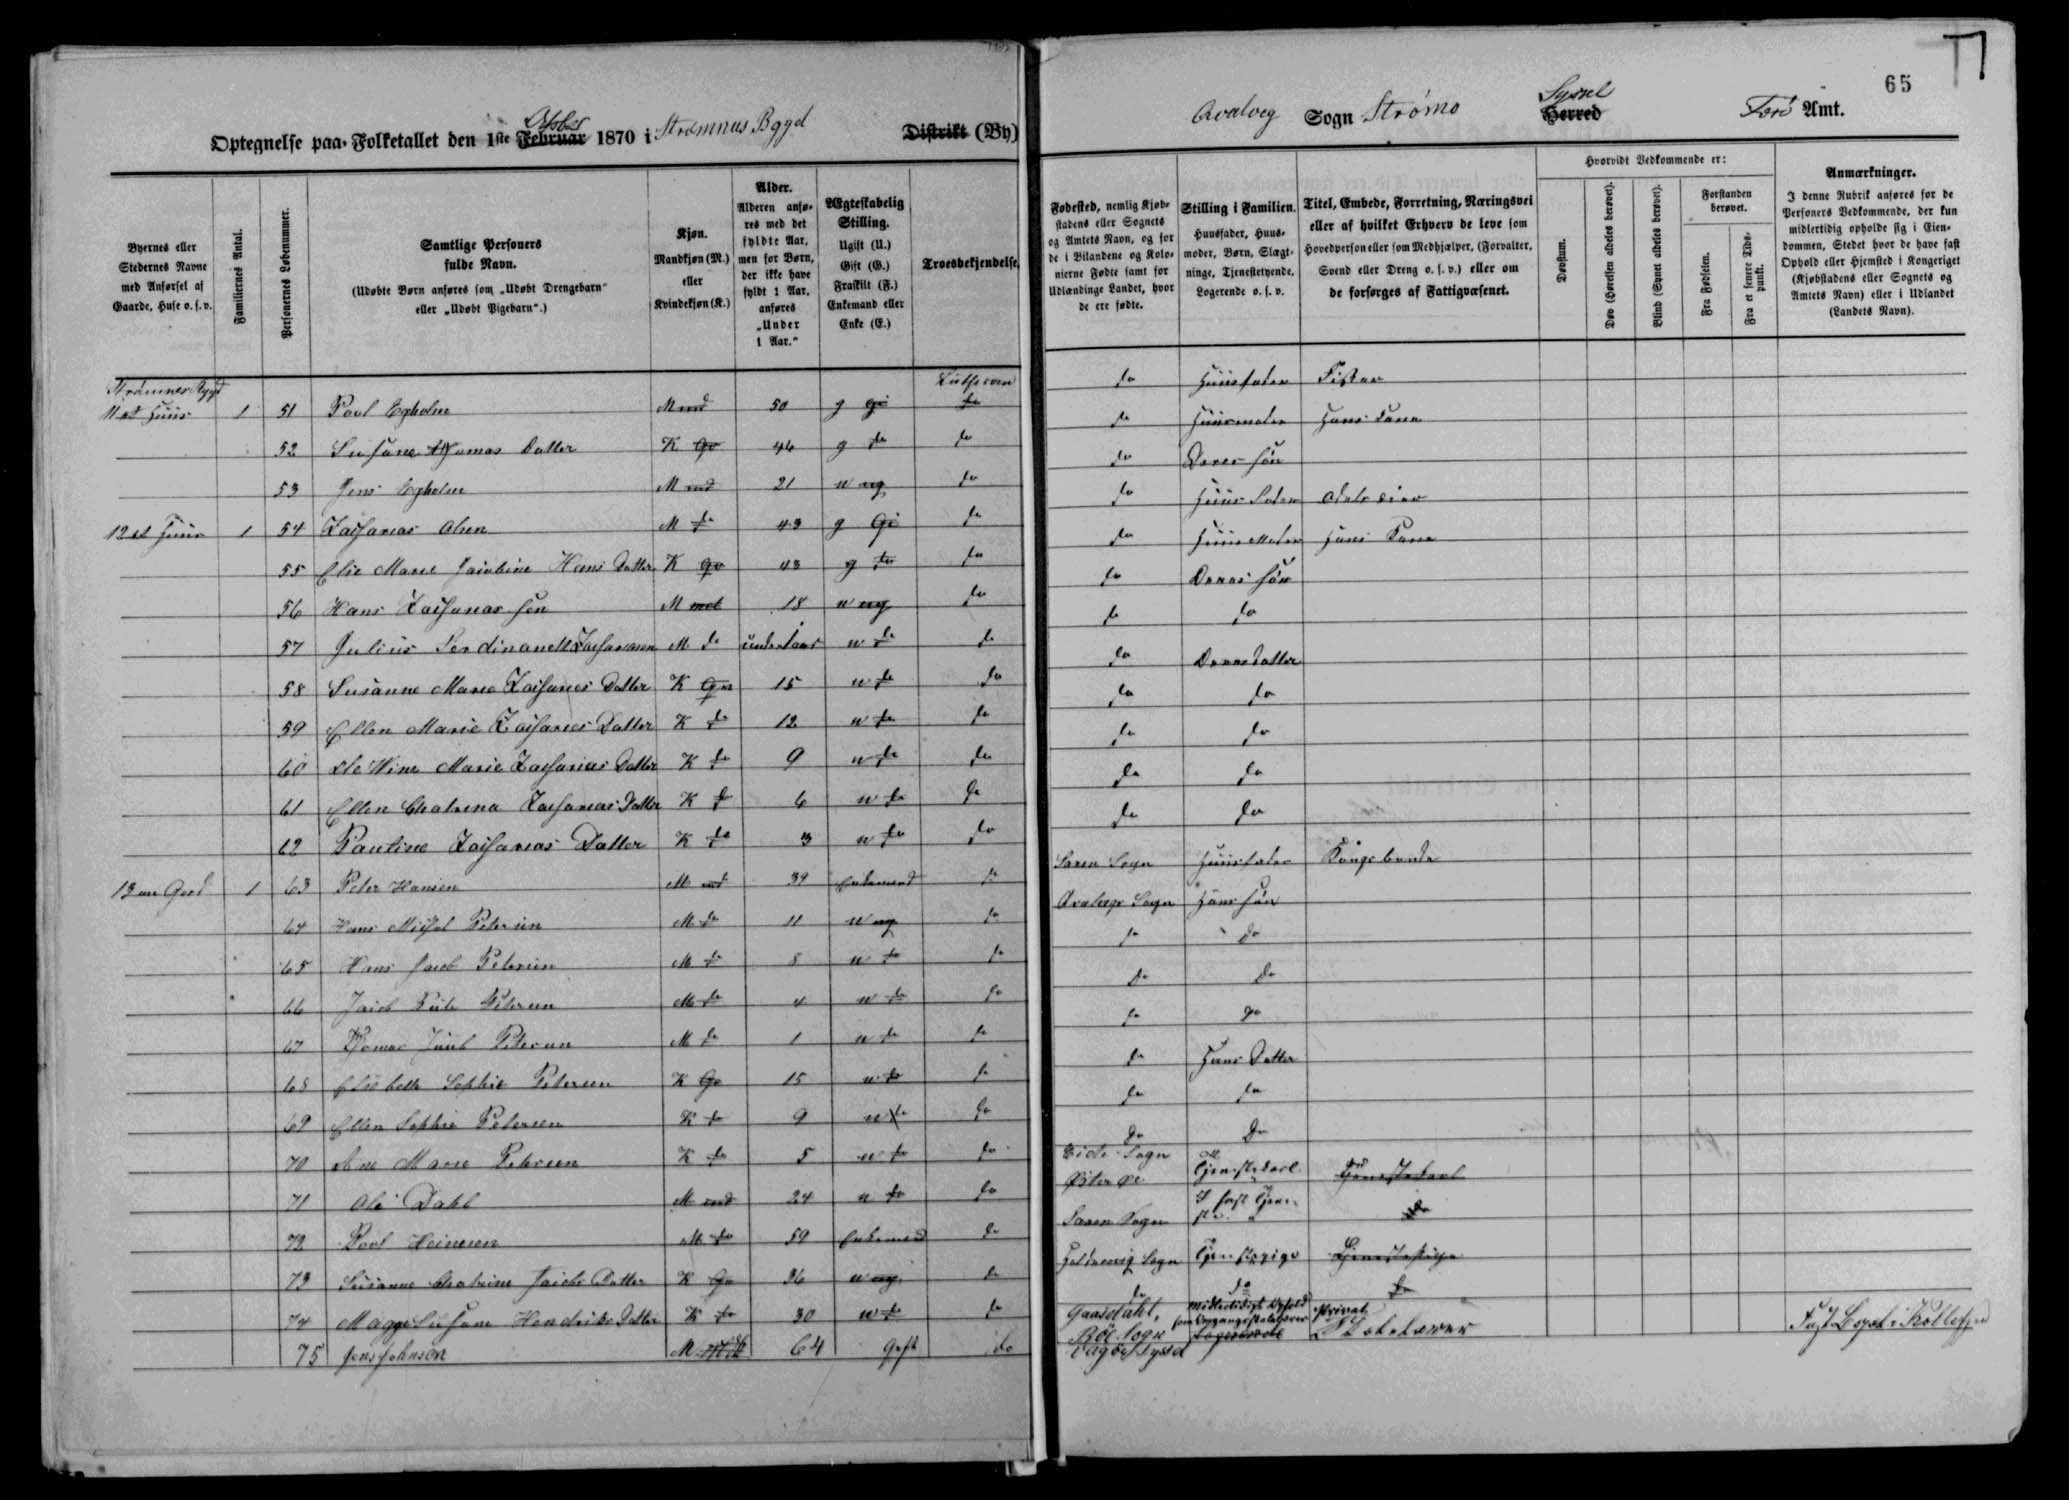 65
Optegnelse paa Folketallet den 1ste Februar 1870 i Strømnes Bygd Distrikt (By)
Qvalveg Sogn Strömo Herred Syssel Færö Amt.
Byernes eller Stedernes Navne med Anførsel af Gaarde, Huse o. s. v.
Familiernes Antal.
Personernes Løbenummer.
Samtlige Personers fulde Navn. (Udøbte Børn anføres som „Udøbt Drengebarn“ eller „Udøbt Pigebarn“.)
Kjøn. Mandkjøn (M.) eller Kvindekjøn (K.)
Alder. Alderen anføres med det fyldte Aar, men for Børn, der ikke have fyldt 1 Aar, anføres „Under 1 Aar.“
Ægteskabelig Stilling. Ugift (U.) Gift (G.) Fraskilt (F.) Enkemand eller Enke (E.)
Troesbekjendelse.
Fødested, nemlig Kjøbstadens eller Sognets og Amtets Navn, og for de i Bilandene og Kolonierne Fødte samt for Udlændinge Landet, hvor de ere fødte.
Stilling i Familien. Huusfader, Huusmoder, Børn, Slægtninge, Tjenestetyende, Logerende o. s. v.
Titel, Embede, Forretning, Næringsvei eller af hvilket Erhverv de leve som Hovedperson eller som Medhjælper, (Forvalter, Svend eller Dreng o. s. v.) eller om de forsørges af Fattigvæsenet.
Hvorvidt Vedkommende er:
Døvstum.
Døv (Hørelsen aldeles berøvet).
Blind (Synet aldeles berøvet).
Forstanden berøvet.
Fra Fødselen.
Fra et senere Tidspunkt.
Anmærkninger. I denne Rubrik anføres for de Personers Vedkommende, der kun midlertidig opholde sig i Eiendommen, Stedet hvor de have fast Ophold eller Hjemsted i Kongeriget (Kjøbstadens eller Sognets og Amtets Navn) eller i Udlandet (Landets Navn).
Strömnes Bygd
11 et Huus 1 51 Poul Egholm M 50 g Lutheran do Huusfader Fisker
52 Susane Thomas Datter K 46 g do do Huusmoder Hans Kone
53 Jens Egholm M 21 u do do Deres Sön
12 et Huus 1 54 Zacharias Olsen M 43 g do do Huus Fader
55 Elie Marie Jacobine Hans Datter K 43 g do do Huus Moder Hans Kone
56 Hans Zacharias Sön M 18 u do do Deres Sön
57 Julius Ferdinandt Zachariasen M do under 1 aar u do do do
58 Susanne Marie Zacharias Datter K 15 u do do Deres Datter
59 Ellen Marie Zacharias Datter K 12 u do do do
60 Marie Zacharias Datter K 9 u do do do
61 Ellen Chatrina Zacharias Datter K 6 u do do do
62 Pauline Zacharias Datter K 3 u do do do
13 en Gaard 1 63 Peter Hansen M 39 Enkemand do Sogn Huusfader Kongsbonde
64 Hans Michel Petersen M 11 u do Sogn Hans Sön
65 Hans Jacob Petersen M 8 u do do do
66 Jacob Petersen M 4 u do do do
67 Thomas Petersen M 1 u do do do
68 Elisbeth Sophie Petersen K 15 u do do Hans Datter
69 Ellen Sophie Petersen K 9 u do do do
70 Ane Marie Petersen K 5 u do do do
71 Ole Dahl M 24 u do Eide Sogn Øster Øe Tjenestekarl Tjenestekarl
72 Poul Heinesen M 59 Enkemand do Sogn do
73 Susanne Chatrine Jacobs Datter K 36 u do Sogn Tjenestepige Tjenestepige
74 Magge Susane Hendriks Datter K 30 u do do do do
75 Jens Johnsen M 64 Gift do Gaasedahl, Böe Sogn Vaagöe Syssel Midlertidigt Ophold som Omgangsskolelærer Logerende Privat Skolelærer